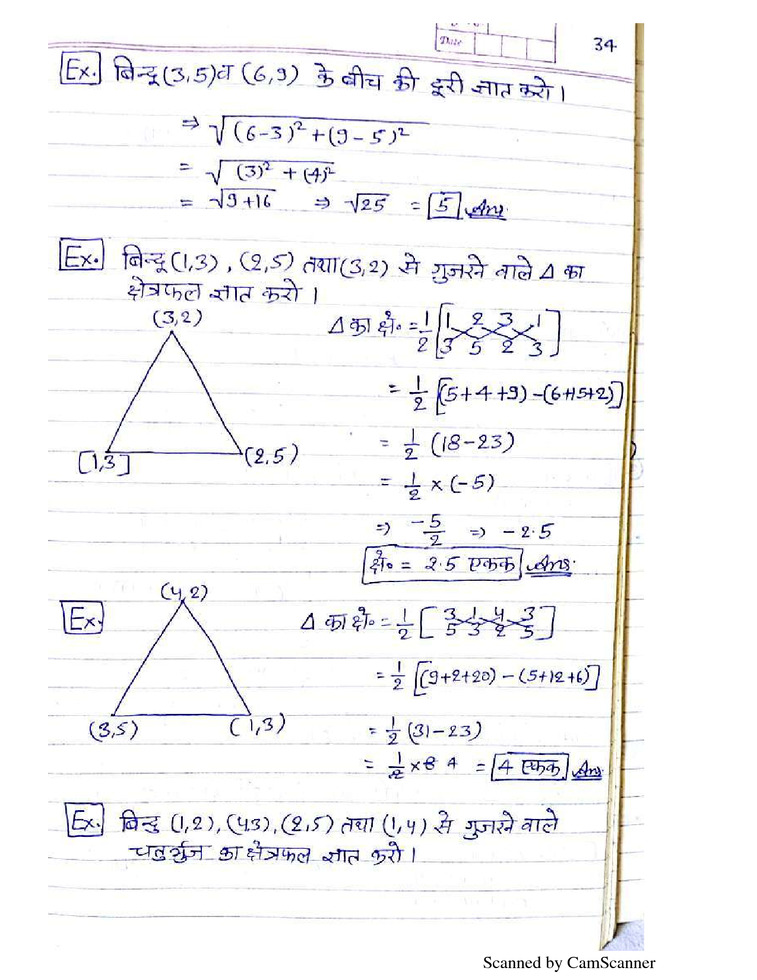 Date
34
Ex. बिन्दू (3,5) व (6,9) के बीच की दूरी ज्ञात करो।
⇒ √(6-3)² + (9-5)²
= √(3)² + (4)²
= √9+16 ⇒ √25 = 5 Ans
Ex. बिन्दू (1,3), (2,5) तथा (3,2) से गुजरने वाले Δ का
क्षेत्रफल ज्ञात करो।
(3,2)
[1,3]
(2,5)
Δ का क्षे॰ = 1/2 [1 2 3 1
3 5 2 3]
= 1/2 [(5+4+9) - (6+15+2)]
= 1/2 (18-23)
= 1/2 × (-5)
⇒ -5/2 ⇒ -2.5
क्षे॰ = 2.5 एकक Ans.
Ex.
(4,2)
(3,5)
(1,3)
Δ का क्षे॰ = 1/2 [3 1 4 3
5 3 2 5]
= 1/2 [(9+2+20) - (5+12+6)]
= 1/2 (31-23)
= 1/2 × 8 4 = 4 एकक Ans
Ex. बिन्दु (1,2), (4,3), (2,5) तथा (1,4) से गुजरने वाले
चतुर्भुज का क्षेत्रफल ज्ञात करो।
Scanned by CamScanner